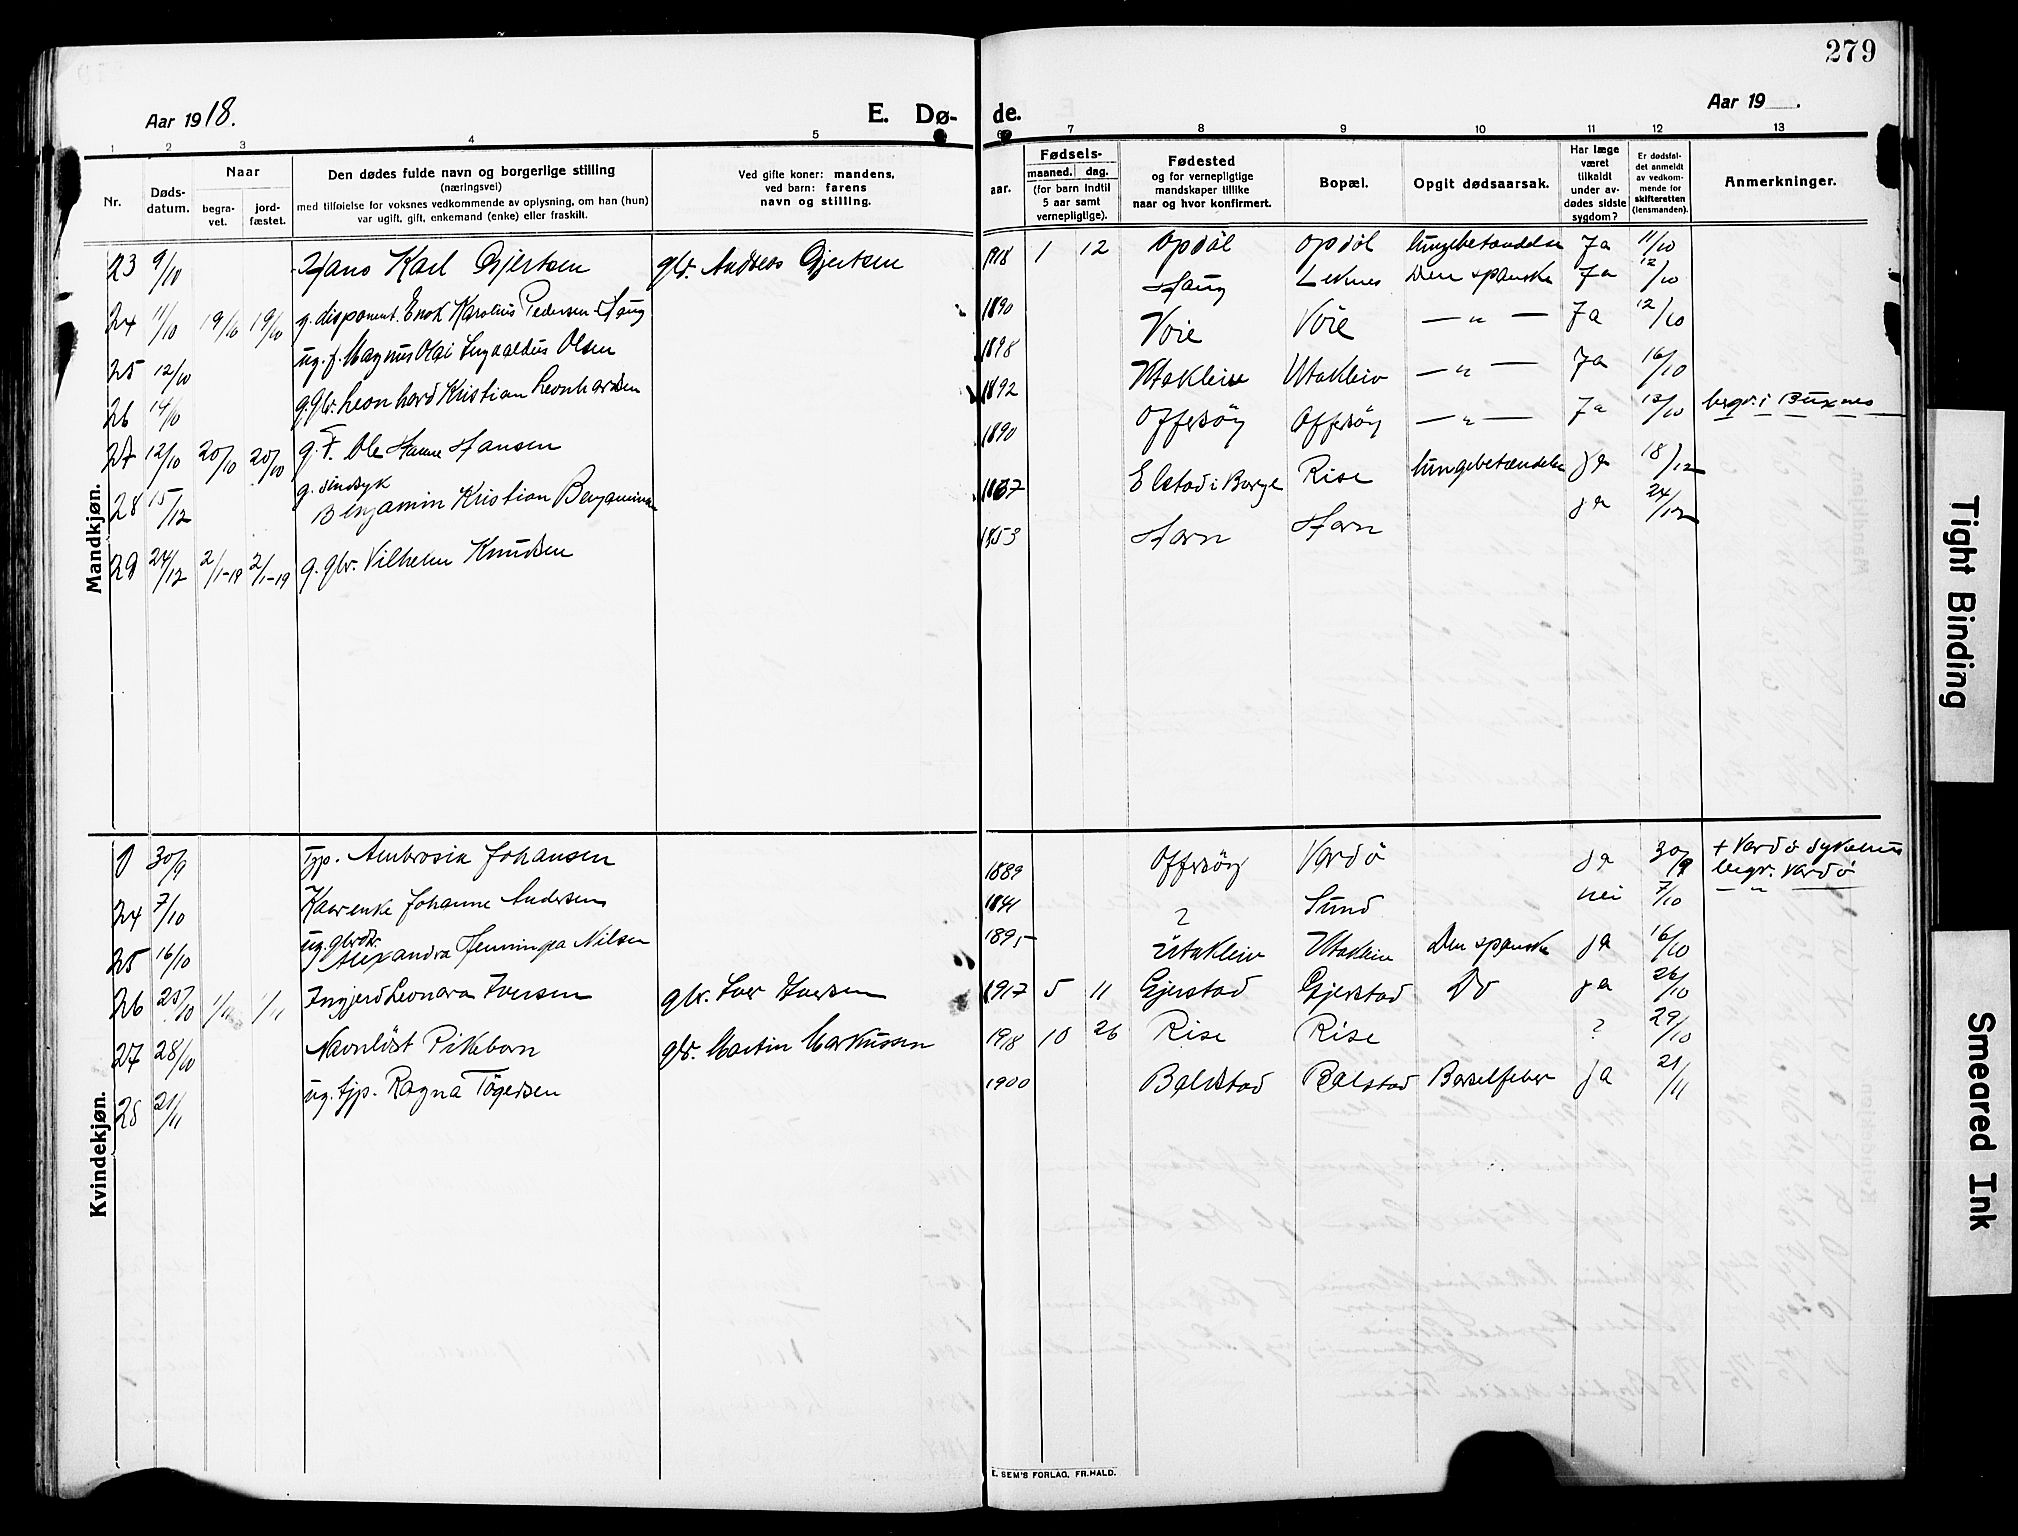 279
Aar 1918.
E. Dø-
de.
Aar 19 .
1 2 3 4 5 6 7 8 9 10 11 12 13
Nr.
Døds-
datum.
Naar
begra-
vet.
jord-
fæstet.
Den dødes fulde navn og borgerlige stilling
(næringsvei)
med tilføielse for voksnes vedkommende av oplysning, om han (hun)
var ugift, gift, enkemand (enke) eller fraskilt.
Ved gifte koner: mandens,
ved barn: farens
navn og stilling.
aar.
Fødsels-
maaned. dag.
(for barn indtil
5 aar samt
vernepligtige).
Fødested
og for vernepligtige
mandskaper tillike
naar og hvor konfirmert.
Bopæl.
Opgit dødsaarsak.
Har læge
været
tilkaldt
under av-
dødes sidste
sygdom?
Er dødsfal-
det anmeldt
av vedkom-
mende for
skifteretten
(lensmanden).
Anmerkninger.
Mandkjøn.
23 9/10 Hans Karl Gjertsen gbr. Andreas Gjertsen 1918 1 12 Opdøl Opdøl lungebetændelse Ja 11/10
24 11/10 19/10 19/10 g. disponent. Enok Karolius Pedersen Haug 1890 Haug Leknes Den spanske Ja 12/10
25 12/10 ug. f. Magnus Olai Ingvaldus Olsen 1898 Voie Voie — " — Ja 12/10
26 14/10 g. gbr. Leonhard Kristian Leonhardsen 1892 Utakleiv Utakleiv — " — Ja 16/10
27 12/10 20/10 20/10 g. F. Ole Hansen 1890 Offersøy Offersøy — " — Ja 13/10 begr. i Buxnes
28 15/12 g. sindsyk
Benjamin Kristian Benjaminsen 1867 Elstad i Borge Rise lungebetændelse ja 18/12
29 24/12 2/1-19 2/1-19 g. gbr. Vilhelm Knudsen 1853 Horn Horn ja 24/12
Kvindekjøn.
30/9 tjp. Ambrosia Johansen 1889 Offersøy Vardø ja 30/9 + Vardø sykehus
begr. Vardø
24 7/10 Kaarenke Johanne Andersen 1841 ? Sund nei 7/10 — " —
25 16/10 ug. gbrdtr.
Alexandra Henninga Nilsen 1895 Utakleiv Utakleiv Den spanske ja 16/10
26 25/10 1/11 1/11 Ingjerd Leonora Iversen gbr. Iver Iversen 1917 5 11 Gjerstad Gjerstad Do ja 26/10
27 28/10 Navnløst Pikebarn gbr. Martin Markussen 1918 10 26 Rise Rise ? 29/10
28 21/11 ug. tjp. Ragna Tøgersen 1900 Balstad Balstad Barselfeber ja 21/11
E. SEM'S FORLAG, FR.HALD.
Tight Binding
Smeared Ink